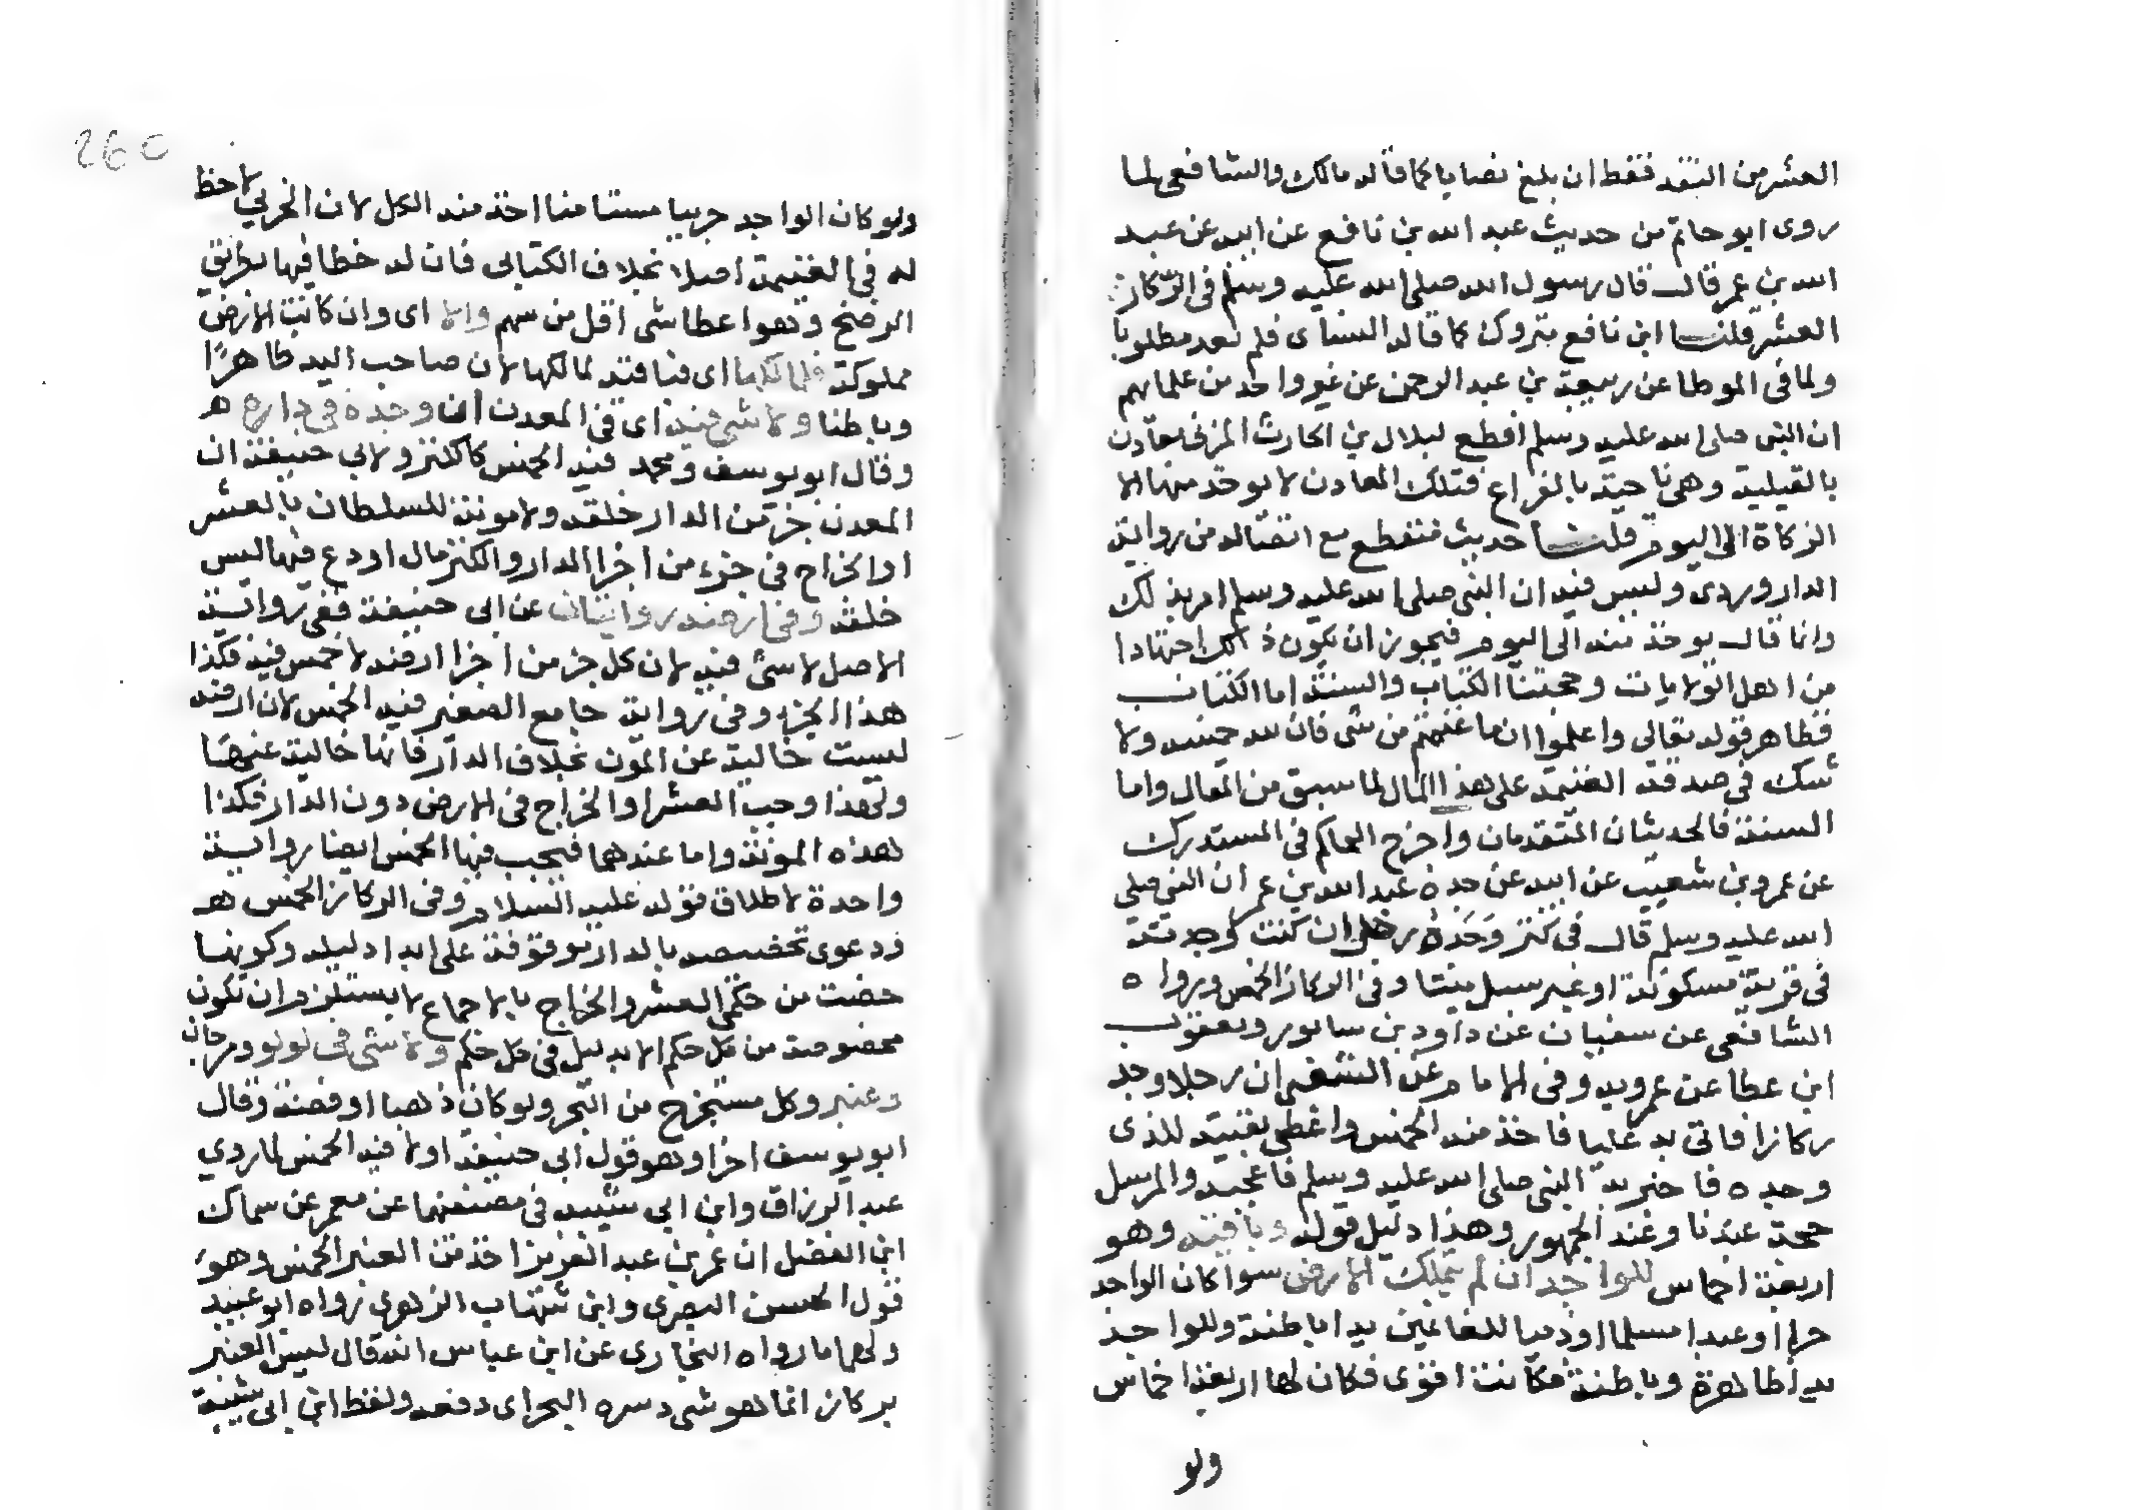 العشر من النقد فقط ان بلغ نصابا كما قاله مالك والشافعي لما
روى ابو حاتم من حديث عبد الله بن نافع عن ابيه عن عبد
الله بن عمر قال قال رسول الله صلى الله عليه وسلم في الركاز
العشر قلنا ابن نافع متروك كما قاله النساى فلم يعد مطلوبا
ولما في الموطا عن ربيعة بن عبد الرحمن عن غير واحد من علمايهم
ان النبي صلى الله عليه وسلم اقطع لبلال بن الحارث المزني معادن
بالقبلية وهي ناحية بالفراع فتلك المعادن لا يوخذ منها الا
الزكاة الى اليوم قلنا حديث منقطع مع اتصاله من رواية
الداروردى وليس فيه ان النبي صلى الله عليه وسلم امر بذلك
وانما قال يوخذ منه الى اليوم فيجوز ان يكون ذلك اجتهادا
من اهل الولايات وحجتنا الكتاب والسنة اما الكتاب
فظاهر قوله تعالى واعلموا انما غنمتم من شي فان لله خمسه ولا
شك في صدقة الغنيمة على هذا المال لما سبق من المعال واما
السنة فالحديثان المتقدمان واخرج الحاكم في المستدرك
عن عمرو بن شعيب عن ابيه عن جده عبد الله بن عمر ان النبي صلى
الله عليه وسلم قال في كنز وجده رجل ان كنت وجدته
في قرية مسكونة او غير سبل ميتا وفي الركاز الخمس ورواه
الشافعي عن سفيان عن داود بن سابور ويعقوب
ابن عطا عن عمرو به وفي الامام عن الشعبي ان رجلا وجد
ركازا فاتى به عليا فاخذ منه الخمس واعطى بقيته للذى
وجده فاخبر به النبي صلى الله عليه وسلم فاعجبه والمرسل
حجة عندنا وعند الجمهور وهذا دليل قوله وباقيه وهو
اربعة اخماس للواجد ان لم تملك الارض سوا كان الواجد
حرا او عبدا مسلما او ذميا للغانمين يدا باطنة وللواجد
يدا ظاهرة وباطنة فكانت اقوى فكان لها اربعة اخماس
ولو
260
ولو كان الواجد حربيا مستامنا اخذ منه الكل لان الحربي لا حظ
له في الغنيمة اصلا بخلاف الكتابي فان له حظا فيها بطريق
الرضخ وهو اعطا شي اقل من سهم والا اى وان كانت الارض
مملوكة فلمالكها اى فباقيه لمالكها لان صاحب اليد ظاهرا
وباطنا ولا شي فيه اى في المعدن ان وجده في داره هـ
وقال ابو يوسف ومحمد فيه الخمس كالكنز ولابي حنيفة ان
المعدن جز من الدار خلقه ولا مونة للسلطان بالعشر
او الخراج في جزء من اجزا الدار والكنز مال اودع فيها ليس
خلقة وفي ارضه روايتان عن ابي حنيفة ففي رواية
الاصل لا شئ فيه لان كل جز من اجزا ارضه لا خمس فيه فكذا
هذا الجزء وفي رواية جامع الصغير فيه الخمس لان ارضه
ليست خالية عن المون بخلاف الدار فانها خالية عنهما
ولهذا وجب العشر او الخراج في الارض دون الدار فكذا
هذه المونة واما عندهما فيجب فيها الخمس ايضا رواية
واحدة لاطلاق قوله عليه السلام وفي الركاز الخمس هـ
ودعوى تخصيصه بالدار موقوفة على ابدا دليله وكونها
خصت من حكمي العشر والخراج بالاجماع لا يستلزم ان تكون
مخصوصة من كل حكم الا بدليل في كل حكم ولا شي في لولو ومرجان
وعنبر وكل مستخرج من البحر ولو كان ذهبا او فضة وقال
ابو يوسف اخرا وهو قول ابي حنيفة اولا فيه الخمس لما روي
عبد الرزاق وابن ابي شيبه في مصنفيهما عن معمر عن سماك
ابن الفضل ان عمر بن عبد العزيز اخذ من العنبر الخمس وهو
قول الحسن البصري وابن شهاب الزهري رواه ابو عبيد
ولهما ما رواه البخاري عن ابن عباس انه قال ليس العنبر
بركاز انما هو شي دسره البحر اى دفعه ولفظ ابن ابي شيبة